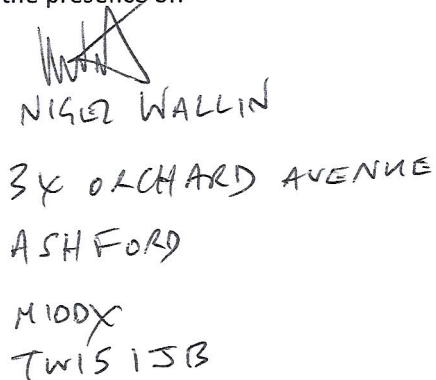 the presence of:
NIGEL WALLIN
3X ORCHARD AVENUE
ASHFORD
MIDDX
TW15 1JB